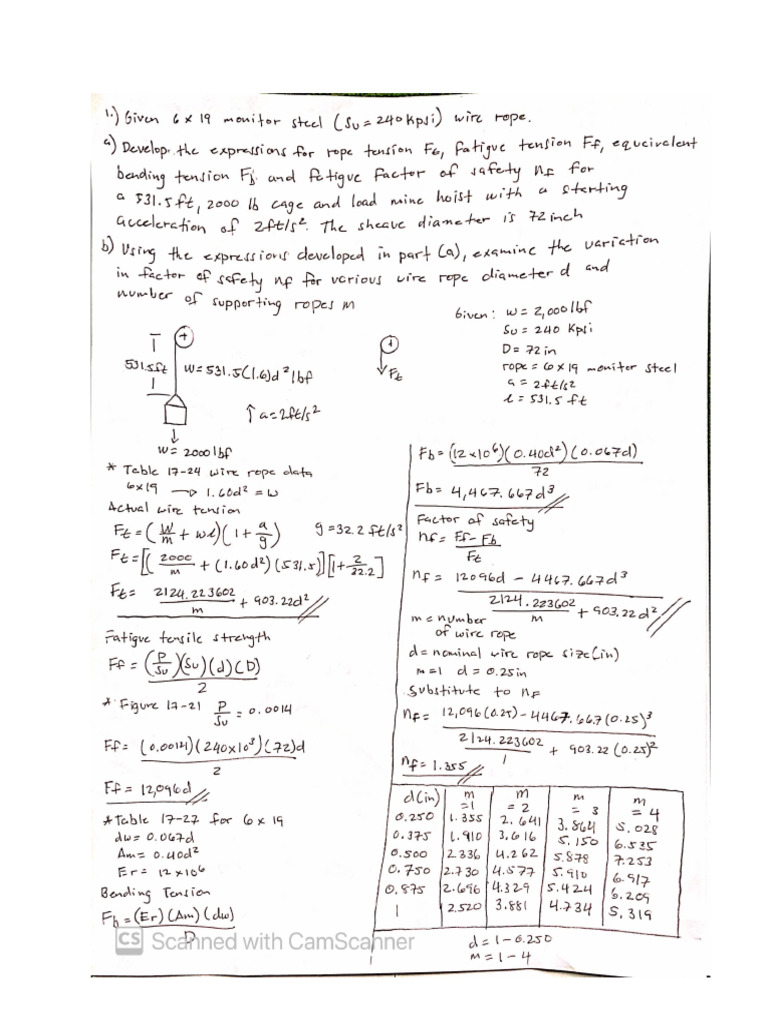 1.) Given 6 x 19 monitor steel (Su = 240 kpsi) wire rope.
a) Develop the expressions for rope tension Ft, fatigue tension Ff, equivalent
bending tension Fb and fatigue factor of safety nf for
a 531.5 ft, 2000 lb cage and load mine hoist with a starting
acceleration of 2ft/s². The sheave diameter is 72 inch
b) Using the expressions developed in part (a), examine the variation
in factor of safety nf for various wire rope diameter d and
number of supporting ropes m
Given: w = 2,000 lbf
Su = 240 Kpsi
D = 72 in
rope = 6 x 19 monitor steel
a = 2ft/s2
l = 531.5 ft
531.5ft
w = 531.5(1.6)d² lbf
Ft
↑ a = 2ft/s²
w = 2000 lbf
* Table 17-24 wire rope data
6x19 → 1.60d² = w
Actual wire tension
Ft = (W/m + wl)(1 + a/g) g = 32.2 ft/s²
Ft = [(2000/m + (1.60d²)(531.5)][1 + 2/32.2]
Ft = 2124.223602/m + 903.22d² //
Fatigue tensile strength
Ff = (P/Su)(Su)(d)(D)/2
* Figure 17-21 P/Su = 0.0014
Ff = (0.0014)(240x10³)(72)d/2
Ff = 12,096d //
* Table 17-27 for 6 x 19
dw = 0.067d
Am = 0.40d²
Er = 12 x 10⁶
Bending Tension
Fb = (Er)(Am)(dw)/D
Fb = (12 x10⁶)(0.40d²)(0.067d)/72
Fb = 4,467.667d³ //
Factor of safety
nf = Ff - Fb/Ft
nf = 12096d - 4467.667d³/2124.223602/m + 903.22d² //
m = number
of wire rope
d = nominal wire rope size (in)
m = 1 d = 0.25in
Substitute to nf
nf = 12,096(0.25) - 4467.667(0.25)³/2124.223602/1 + 903.22 (0.25)²
nf = 1.355 //
d(in) m =1 m = 2 m = 3 m = 4
0.250 1.355 2.641 3.864 5.028
0.375 1.910 3.616 5.150 6.535
0.500 2.336 4.262 5.878 7.253
0.750 2.730 4.577 5.910 6.917
0.875 2.696 4.329 5.424 6.209
1 2.520 3.881 4.734 5.319
d = 1 - 0.250
m = 1 - 4
CS Scanned with CamScanner